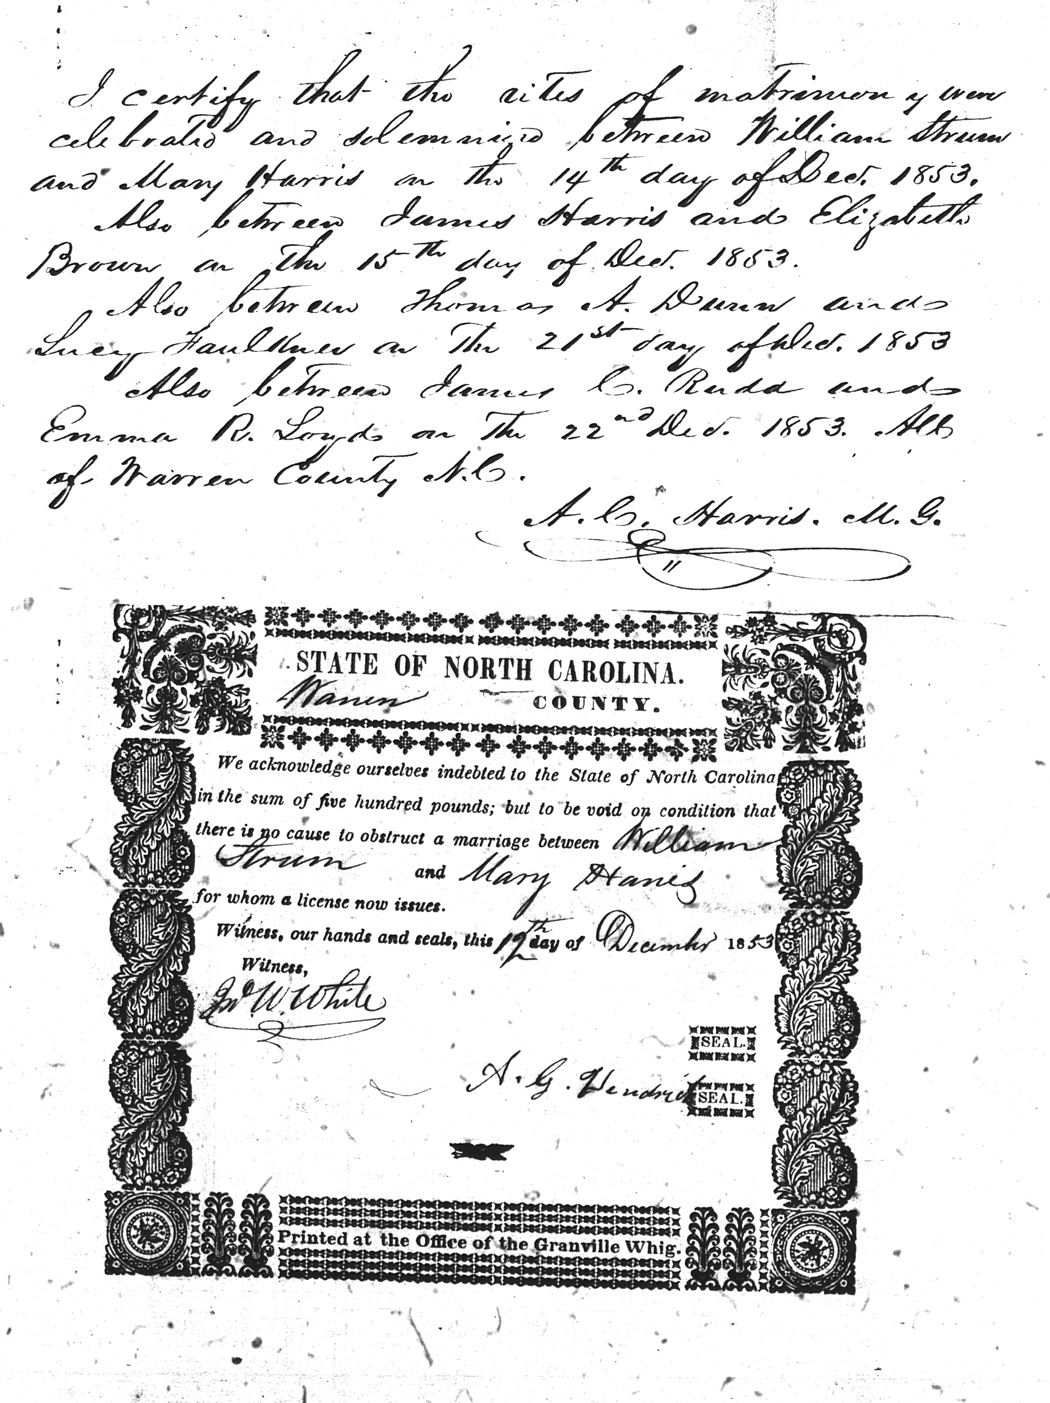 I certify that the rites of matrimony were
celebrated and solemnized between William Strum
and Mary Harris on the 14th day of Dec. 1853.
Also between James Harris and Elizabeth
Brown on the 15th day of Dec. 1853.
Also between Thomas A. Dunn and
Lucy Faulkner on the 21st day of Dec. 1853
Also between James C. Rudd and
Emma R. Loyd on the 22nd Dec. 1853. All
of Warren County N.C.
A. C. Harris. M. G.
STATE OF NORTH CAROLINA.
Warren COUNTY.
We acknowledge ourselves indebted to the State of North Carolina
in the sum of five hundred pounds; but to be void on condition that
there is no cause to obstruct a marriage between William
Strum and Mary Harris
for whom a license now issues.
Witness, our hands and seals, this 12th day of December 1853
Witness,
Jno. W. White
SEAL.
A. G. Hendrick SEAL.
Printed at the Office of the Granville Whig.